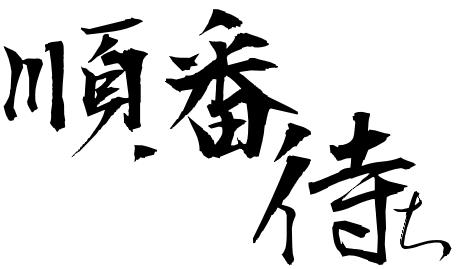 順番
待ち